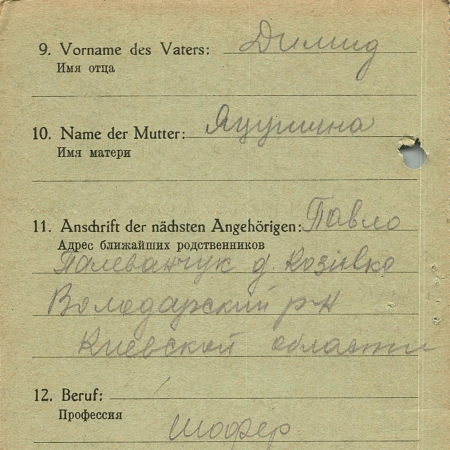 9. Vorname des Vaters: Димид
Имя отца
10. Name der Mutter: Яцунина
Имя матери
11. Anschrift der nächsten Angehörigen: Павло
Адрес ближайших родственников
Палеванчук д. Козівка
Володарский р-н
Киевской области
12. Beruf:
Профессия
Шофер